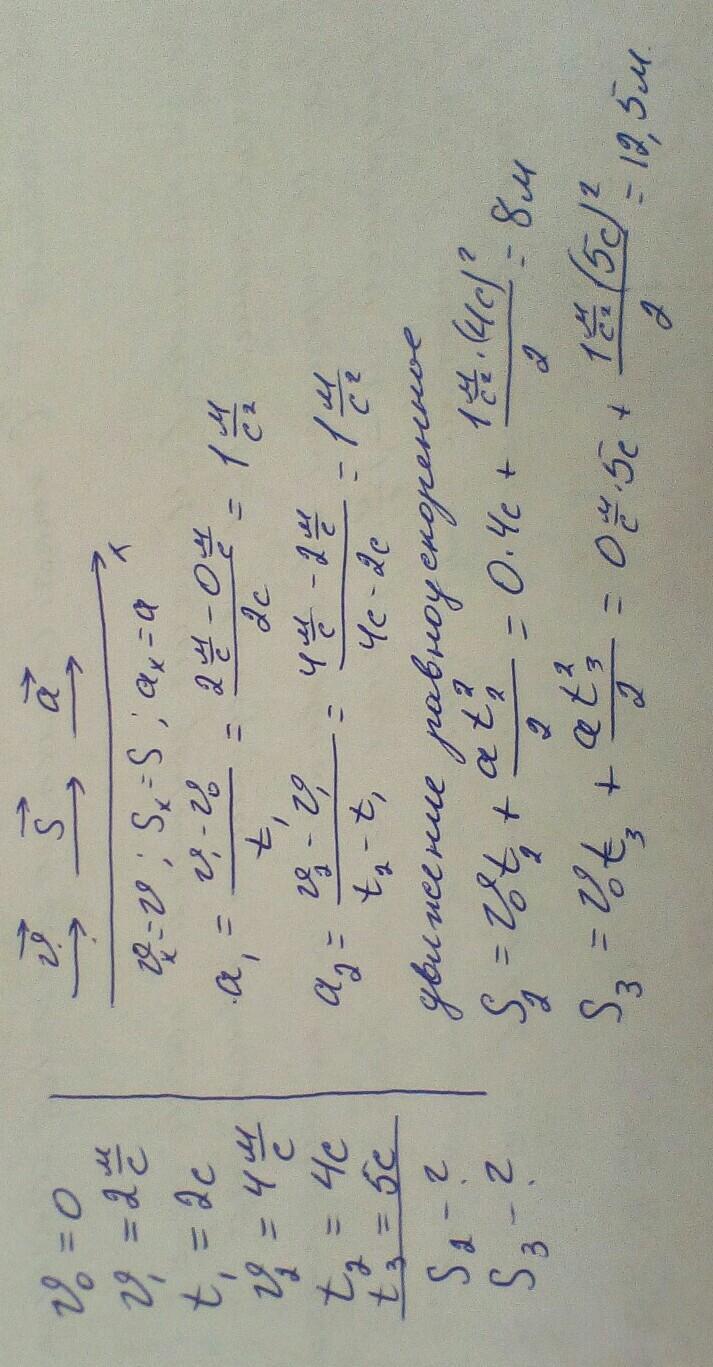 v₀ = 0
v₁ = 2 м/с
t₁ = 2с
v₂ = 4 м/с
t₂ = 4с
t₃ = 5с
S₂ - ?
S₃ - ?
v⃗ S⃗ a⃗
x
vₓ = v ; Sₓ = S ; aₓ = a
a₁ = (v₁ - v₀)/t₁ = (2 м/с - 0 м/с)/2с = 1 м/с²
a₂ = (v₂ - v₁)/(t₂ - t₁) = (4 м/с - 2 м/с)/(4с - 2с) = 1 м/с²
движение равноускоренное
S₂ = v₀t₂ + at₂²/2 = 0·4с + (1 м/с² · (4с)²)/2 = 8м
S₃ = v₀t₃ + at₃²/2 = 0 м/с · 5с + (1 м/с² (5с)²)/2 = 12,5м